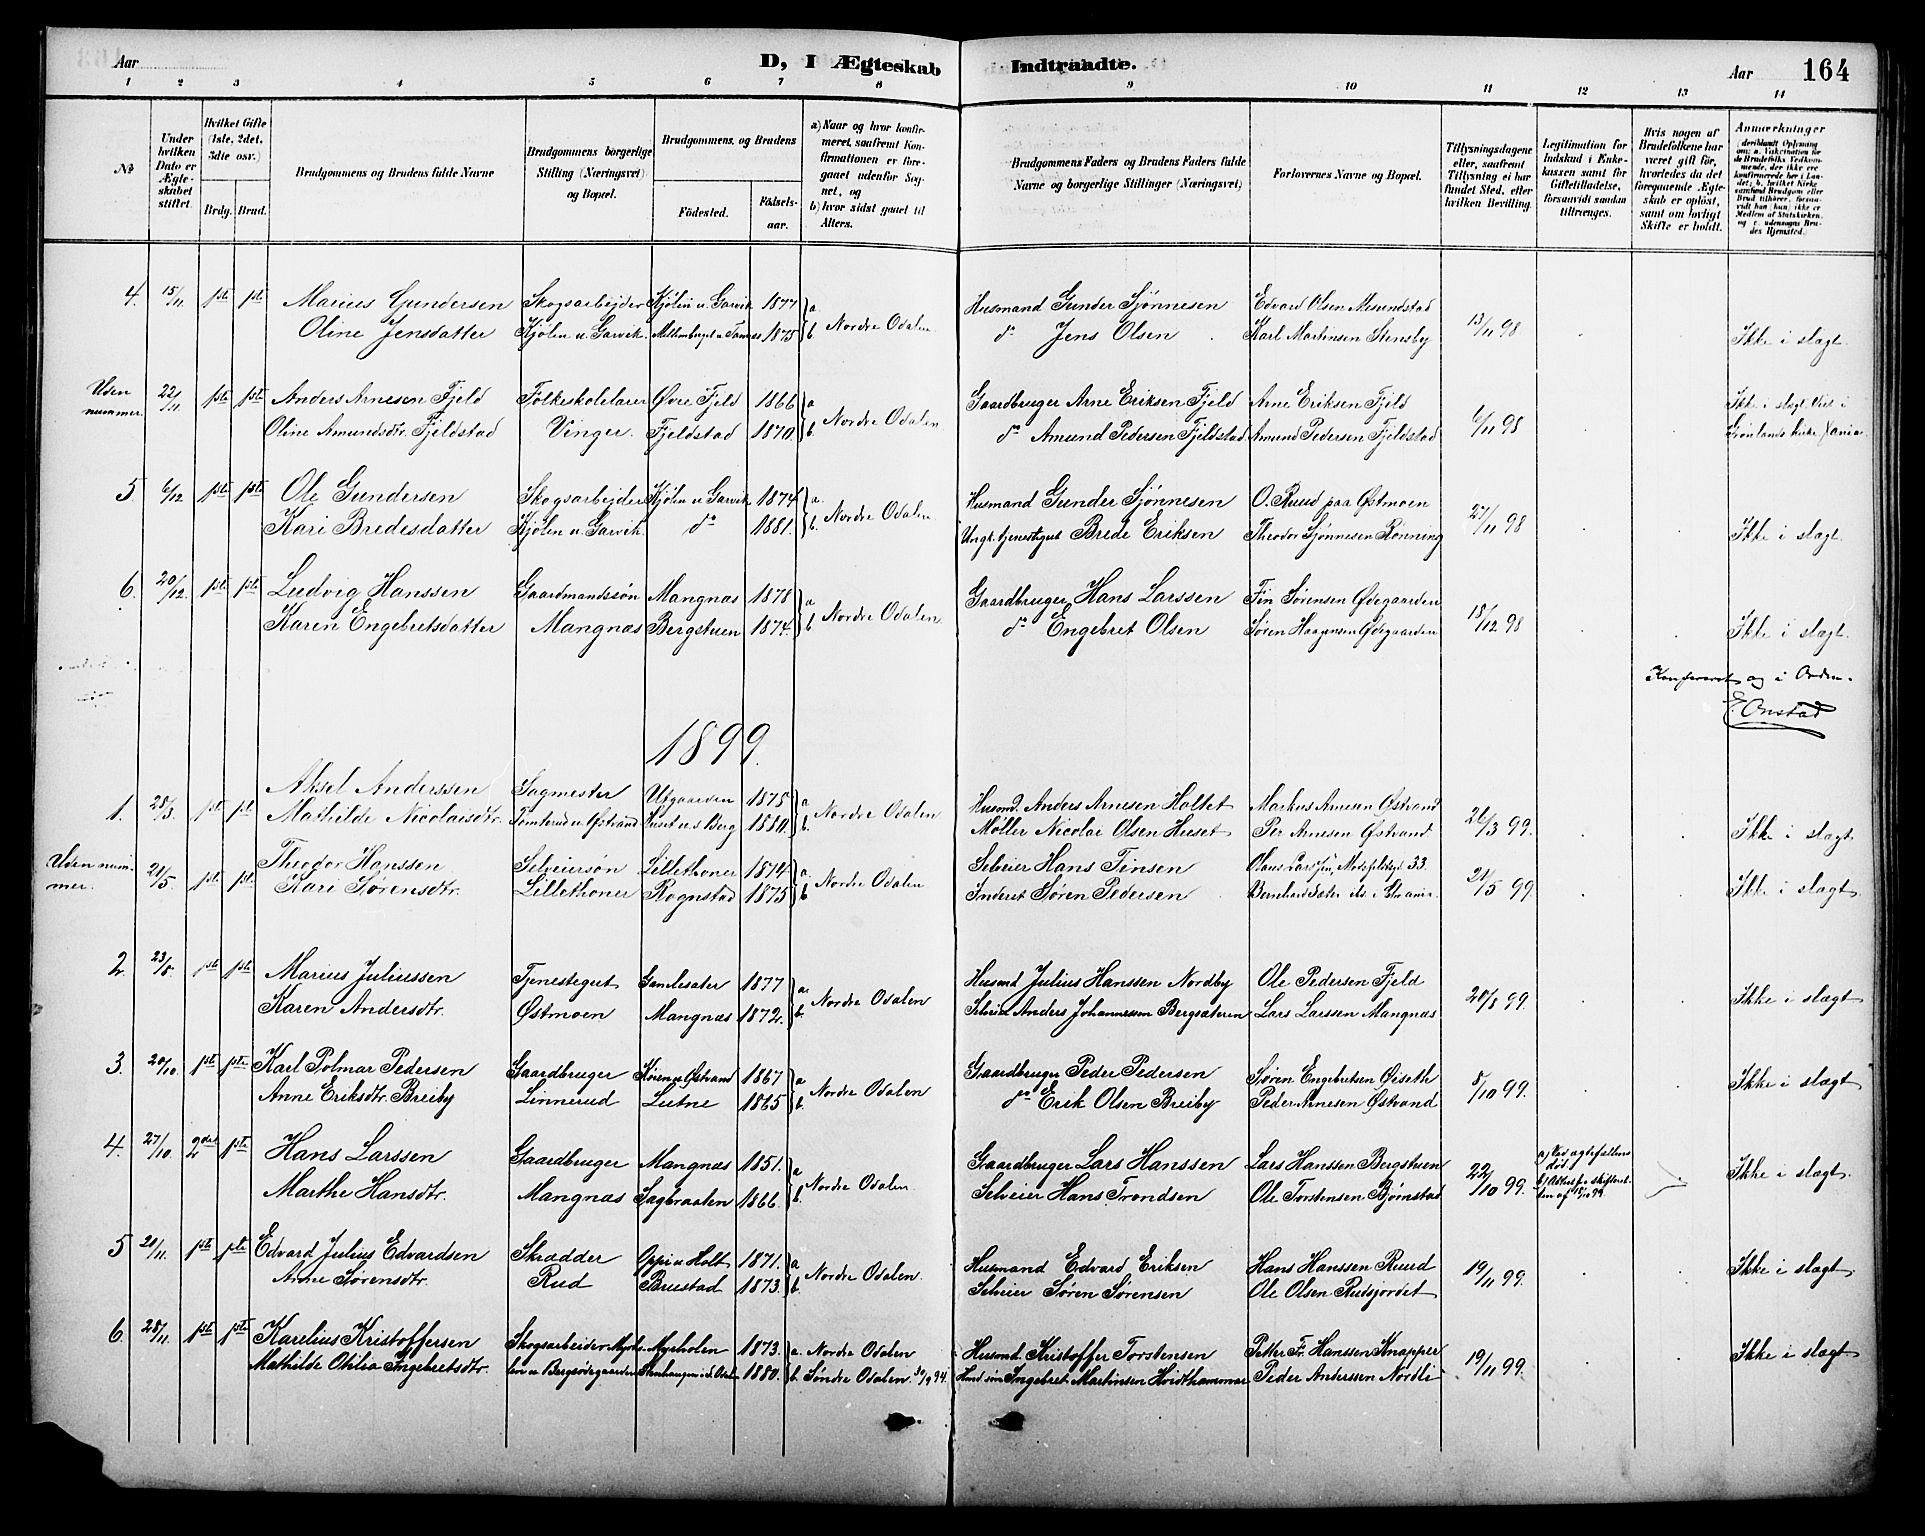 Aar
D, I Ægteskab Indtraadte.
Aar 164
1 2 3 4 5 6 7 8 9 10 11 12 13 14
No
Under hvilken Dato er Ægteskabet stiftet.
Hvilket Gifte (1ste, 2det, 3die osv.)
Brdg. Brud.
Brudgommens og Brudens fulde Navne
Brudgommens borgerlige Stilling (Næringsvei) og Bopæl.
Brudgommens og Brudens
Fødested. Fødselsaar.
a) Naar og hvor konfirmeret, saafremt Konfirmationen er foregaaet udenfor Sognet, og
b) hvor sidst gaaet til Alters.
Brudgommens Faders og Brudens Faders fulde Navne og borgerlige Stillinger (Næringsvei)
Forlovernes Navne og Bopæl.
Tillysningsdagene eller, saafremt Tillysning ei har fundet Sted, efter hvilken Bevilling
Legitimation for Indskud i Enkekassen samt for Giftetilladelse, forsaavidt saadan tiltrænges.
Hvis nogen af Brudefolkene har været gift før, hvorledes da det foregaaende Ægteskab er opløst, samt om lovligt Skifte er holdt.
Anmærkninger
4. 15/11 1ste 1ste Marius Gundersen Skogsarbejder Kjølen u. Garvik 1877 a Husmand Gunder Sjønnesen Edvard Olsen Mesundstad
Oline Jensdatter Kjølen u. Garvik. 1875 b. Nordre Odalen do Jens Olsen Karl Martinsen Stensby 13/11 98 Ikke i slægt.
Uden nummer. 22/11 1ste 1ste Anders Arnesen Fjeld Folkeskolelærer Øvre Fjeld 1866 a Gaardbruger Arne Eriksen Fjeld Arne Eriksen Fjeld Ikke i slægt. Viet i
Oline Amundsdtr. Fjeldstad Vinger. Fjeldstad 1870. b. Nordre Odalen do Amund Pedersen Fjeldstad Amund Pedersen Fjeldstad 6/11 98 Grønlands kirke Xania.
5 6/12 1ste 1ste Ole Gundersen Skogsarbejder Kjølen u. Garvik 1874 a. Husmand Gunder Sjønnesen O. Ruud paa Østmoen
Kari Bredesdatter Kjølen u. Garvik. do 1881. b. Nordre Odalen Ungk. tjenestegut Brede Eriksen Theodor Sjønnesen Rønning 27/11 98 Ikke i slægt.
6. 20/12 1ste 1ste Ludvig Hanssen Gaardmandssøn Mangnæs 1878 a Gaardbruger Hans Larssen Fin Sørensen Ødegaarden
Karen Engebretsdatter Mangnæs Bergstuen 1874. b Nordre Odalen do Engebret Olsen Søren Haagensen Ødegaarden 18/12 98 Ikke i slægt.
Konfereret og i Orden.
E. Onstad
1899.
1. 28/3 1ste 1ste Aksel Anderssen Sagmester Utgaarden 1875 a Husmd. Anders Arnesen Holtet Markus Arnesen Østvand
Mathilde Nicolaisdtr. Tomterud u. Østvand Huset u. s. Berg 1880. b. Nordre Odalen Møller Nicolai Olsen Huset Per Arnesen Østvand 26/3 99. Ikke i slægt.
Uden nummer. 21/5 1ste 1ste Theodor Hanssen Selveiersøn Lillethoner 1874 a. Selveier Hans Finsen
Kari Sørensdtr. Lillethoner Rognstad 1875 b Nordre Odalen Inderst Søren Pedersen 21/5 99. Ikke i slægt
2. 23/8 1ste 1ste Marius Juliussen Tjenestegut Gamlesæter 1877 a. Husmd Julius Hanssen Nordby Ole Pedersen Fjeld
Karen Andersdtr. Østmoen Mangnæs 1872. b. Nordre Odalen Selveier Anders Johannessen Bergsæteren Lars Larssen Mangnæs 20/8 99. Ikke i slægt
3. 20/10. 1ste 1ste Karl Polmar Pedersen Gaardbruger Kören u. Østvand 1867 a Gaardbruger Peder Pedersen Søren Engebretsen Øiseth
Anne Eriksdtr. Breiby Linnerud Lutne 1865 b. Nordre Odalen do Erik Olsen Breiby Peder Arnesen Østvand 8/10 99. Ikke i slægt
4. 27/10. 2det 1ste Hans Larssen Gaardbruger Mangnæs 1851. a Gaardbruger Lars Hanssen Lars Hanssen Bergstuen a) Ved ægtefællens død.
Marthe Hansdtr. Mangnæs Sagbraaten 1866. b. Nordre Odalen. Selveier Hans Trondsen Ole Torstensen Bjørnstad 22/10 99. Ikke i slægt.
5 21/11. 1ste 1ste Edvard Julius Edvardsen Skrædder Oppi u. Holt 1871. a Husmand Edvard Eriksen Hans Hanssen Ruud
Anne Sørensdtr. Rud Brustad 1873. b. Nordre Odalen. Selveier Søren Sørensen Ole Olsen Rudsjordet 19/11 99. Ikke i slægt.
6. 28/11. 1ste 1ste Karelius Kristoffersen Skogsarbeider Myrholen 1873. a. Nordre Odalen Husmd. Kristoffer Torstensen Petter Fr. Hanssen Knapper
Mathilde Otilia Ingebretsdtr. u Bergsødegaarden 1880. b. Søndre Odalen. 30/9 94. Ingebret Martinsen Hvidthammer Peder Anderssen Nordli 19/11 99. Ikke i slægt